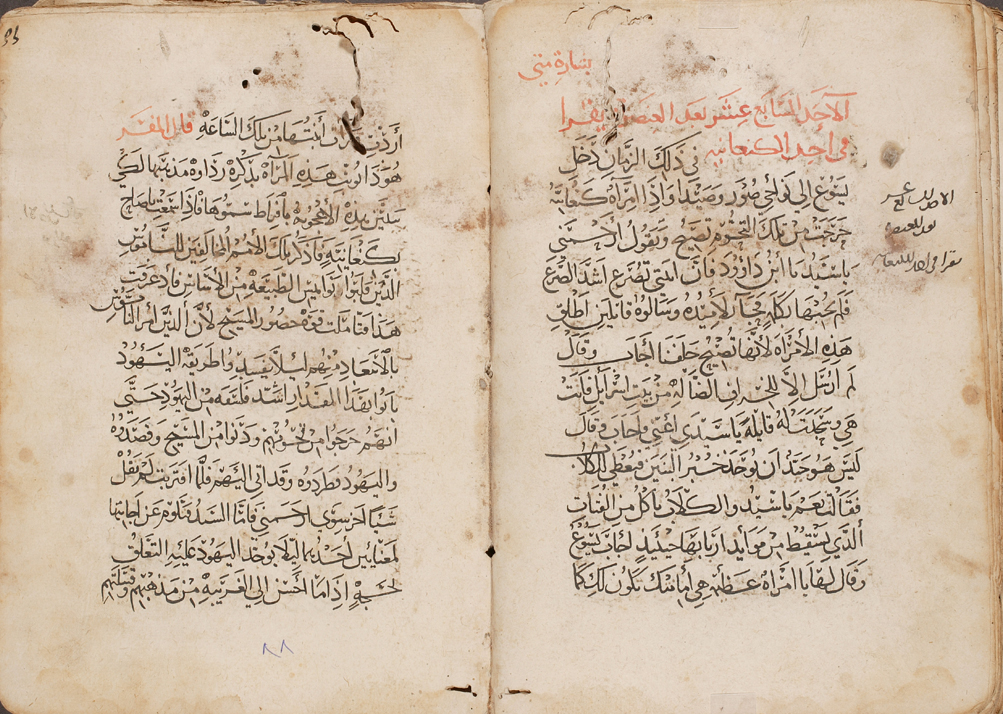 بشارة متي
الاحد السابع عشر بعد العنصرة يقرا
في احد الكنعانيه في ذلك الزمان دخل
يسوع الي نواحي صور وصيدا واذا امراة كنعانية
خرجت من تلك التخوم تصيح وتقول ارحمني
ياسيد يا ابن داوود فان ابنتي تصرع اشد الصرع
فلم يجبها بكلمه فجا تلاميذه وسالوه قايلين اطلق
هذه الامراه لانها تصيح خلفنا اجاب وقال
لم ارسل الا للخراف الضاله من بيت اسرايل فاتت
هي وسجدت له قايله ياسيدي اغثني فاجاب وقال
ليس هو جيد ان يوخذ خبز البنين فيعطي للكلاب
فقالت نعم ياسيد والكلاب ياكل من الفتات
الذي يسقط من موايد اربابها حينيذ اجاب يسوع
وقال لها يا امراة عظيمه هي امانتك يكون لك كما
الاحد السابع عشر
بعد العنصره
يقرا في احد الكنعانيه
اردت ابنتها من تلك الساعه قال المفسر
هوذا لوت هذه المرآة بذكره رداوة مذينتها لكي
يبين هذه الاعجوبه بافراط سموها فاذا سمعت ياصاح
بكنعانية فاذكر تلك الامم المخالفين الناموس
الذين قلبوا نواميس الطبيعه من الاساس فاذ عرفت
هذا فتاملت قوة حضور المسيح لان الذين امر الناموس
بالابعاد منهم ليلا يفسدوا طريقة اليهود
بانوا بهذا المقدار اشد فلسفه من اليهود حتي
انهم خرجوا من تخومهم ودنوا من المسيح وقصدوه
واليهود فطردوه وقد اتي اليهم فلما اقتربت لم تقل
شيا اخر سوي ارحمني فاما السيد فتلوم عن اجابتها
لمعنايين احدهما ليلا يوجد اليهود عليه التعلق
بحجة اذاما احسن الي الغريبه من مذهبهم وقبيلتهم
٨٨